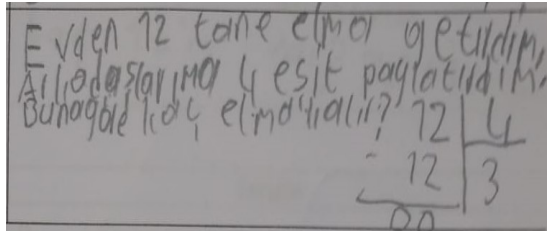 Evden 12 tane elma getirdim,
Arkadaşlarıma 4 eşit paylatırdım.
Bunagöre kaç elma kalır? 12 | 4
- 12 | 3
00